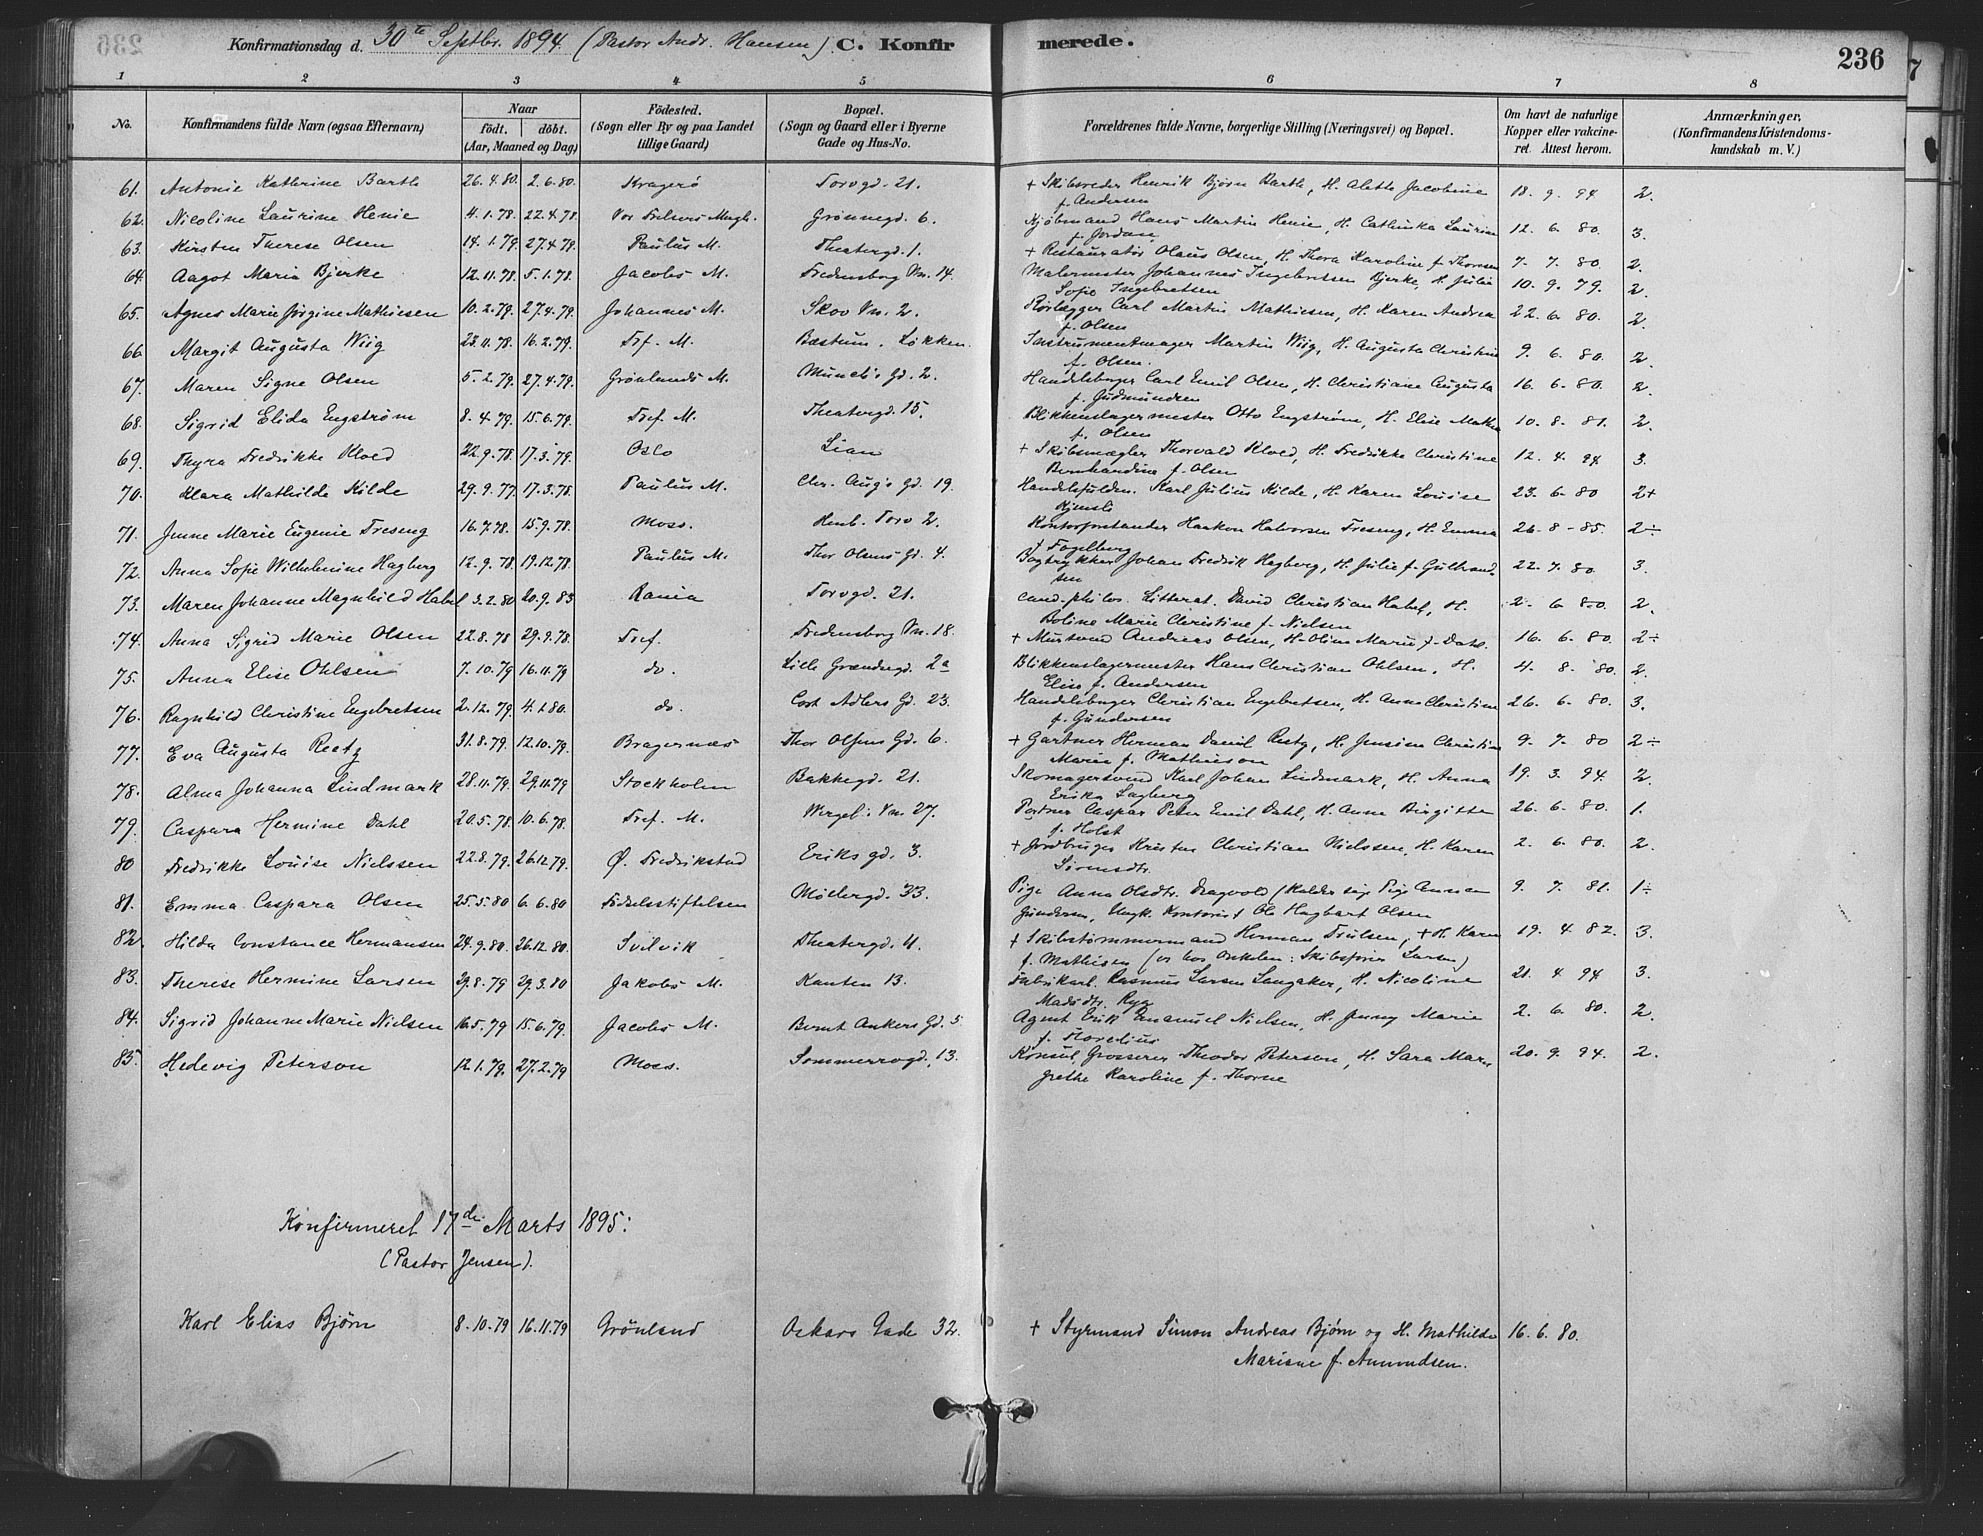 Konfirmationsdag d. 30te Septbr. 1894 (Pastor Andr. Hansen) C. Konfirmerede. 236
1 2 3 4 5 6 7 8
No. Konfirmandens fulde Navn (ogsaa Efternavn) Naar födt. döbt. (Aar, Maaned og Dag) Födested. (Sogn eller By og paa Landet tillige Gaard) Bopæl. (Sogn og Gaard eller i Byerne Gade og Hus-No. Forældrenes fulde Navne, borgerlige Stilling (Næringsvei) og Bopæl. Om havt de naturlige Kopper eller vakcineret. Attest herom. Anmærkninger. (Konfirmandens Kristendomskundskab m. V.)
61. Antonie Kathrine Barth 26.4.80. 2.6.80. Kragerö Torvgd. 21. + Skibsreder Henrik Bjørn Barth, H. Alette Jacobine f. Andersen 18. 9. 94 2.
62. Nicoline Laurine Henie 4.1.78. 22.4.78. Vor Frelsers Mngh. Grønnegd. 6. Kjøbmand Hans Martin Henie, H. Cathinka Laurine f. Jordan 12. 6. 80. 3.
63. Kirsten Therese Olsen 14.1.79. 27.4.79. Paulus M. Theatergd. 1. + Restauratör Olaus Olsen, H. Thora Karoline f. Thoresen 7. 7. 80. 2.
64. Aagot Maria Bjerke 12.11.78. 5.1.78. Jacobs M. Fredensborg Vn. 14. Malermester Johannes Ingebretsen Bjerke, H. Julie Sofie Ingebretsen 10. 9. 79. 2.
65. Agnes Marie Jørgine Mathiesen 10.2.79. 27.4.79. Johannes M. Skov Vn. 2. Rørlægger Carl Martin Mathiesen, H. Karen Andrea f. Olsen 22. 6. 80. 2.
66. Margit Augusta Wiig 23.11.78. 16.2.79. Tref. M. Bæstum. Løkken. Instrumentmager Martin Wiig, H. Augusta Christine f. Olsen 9. 6. 80. 2.
67. Maren Signe Olsen 5.2.79. 27.4.79. Grønlands M. Munch's Gd. 2. Handelsborger Carl Emil Olsen, H. Christiane Augusta f. Gudmundsen 16. 6. 80. 2
68. Sigrid Elida Engström 8.4.79. 15.6.79. Tref. M. Theatergd. 15. Blikkenslagermester Otto Engström, H. Elise Mathea f. Olsen 10. 8. 81. 2.
69. Thyra Fredrikke Kloed 22.9.78. 17.3.79. Oslo Lian + Skibsmægler Thorvald Kloed, H. Fredrikke Christine Bernhardine f. Olsen 12. 4. 94. 3.
70. Klara Mathilde Kilde 29.9.77. 17.3.78. Paulus M. Chr. Aug's Gd. 19. Handelsfuldm. Karl Julius Kilde, H. Karen Lovise 23. 6. 80 2+
71. Jenne Marie Eugenie Freseng 16.7.78. 15.9.78. Moss. Henb. Torv 2. Kontorforstander Haakon Halvorsen Freseng, H. Emma f. Fogelberg 26. 8. 85. 2÷
72. Anna Sofie Wilhelmine Hagberg 12.9.78. 19.12.78. Paulus M. Thor Olsens Gd. 4. Bogtrykker Johan Fredrik Hagberg, H. Julie f. Gulbrandsen 22. 7. 80. 3.
73. Maren Johanne Magnhild Habel 3.2.80 20.9.83 Rania Torvgd. 21. cand. philos. Litterat. David Christian Habel, H. Boline Marie Christine f. Nielsen 2. 6. 80. 2.
74. Anna Sigrid Marie Olsen 22.8.78 29.9.78. Tref. Fredensborg Vn. 18. + Mursvend Andreas Olsen, H. Oline Marie f. Dahl. 16. 6. 80. 2÷
75. Anna Elise Ohlsen 7.10.79 16.11.79 do. Lille Grændsegd. 2a Blikkenslagermester Hans Christian Ohlsen, H. Elise f. Andersen 4. 8. 80. 2.
76. Ragnhild Christine Engebretsen 2.12.79. 4.1.80. do. Cort Adlers Gd. 23. Handelsborger Christian Engebretsen, H. Anne Christine f. Gundersen 26. 6. 80. 3.
77. Eva Augusta Reetz 31.8.79. 12.10.79. Bragernæs Thor Olsens Gd. 6. + Gartner Herman Daniel Reetz, H. Jensine Christine Marie f. Mathieson 9. 7. 80 2÷
78. Alma Johanna Lindmark 28.11.79. 29.11.79 Stockholm Bakkegd. 21. Skomagersvend Karl Johan Lindmark, H. Anna Erika Lagberg 19. 3. 94. 2.
79. Caspara Hermine Dahl 20.5.78. 10.6.78. Tref. M. Wergel. Vn. 27. Portner Caspar Peter Emil Dahl, H. Anne Birgitte f. Holst 26. 6. 80. 1.
80 Fredrikke Louise Nielssen 22.8.79. 26.12.79. Ø. Fredrikstad Eriks gd. 3. + Jordbruger Kristen Christian Nielssen, H. Karen 2. 6. 80. 2.
81. Emma Caspara Olsen 25.5.80 6.6.80 Födselsstiftelsen Møllergd. 33. Pige Anna Olsdtr. Dragvold (kalder sig Pige Anna Gundersen, Ungk. Kontorist Ole Hagbart Olsen 9. 7. 81. 1÷
82. Hilda Constance Hermansen 24.9.80. 26.12.80. Svelvik Theatergd. 11. + Skibstømmermand Herman Trulsen, + H. Karen f. Mathisen (er hos Onkelen: Skibsfører Larsen) 19. 4. 82. 3.
83. Therese Hermine Larsen 29.8.79 29.3.80 Jakobs M. Ranten 13. Fabrikarb. Rasmus Larsen Langaker, H. Nicoline Madsdtr. Ryg 21. 4. 94 3.
84. Sigrid Johanne Marie Nielsen 16.5.79 15.6.79. Jacobs M. Bernt Ankers Gd. 5 Agent Erik Emanuel Nielsen, H. Jenny Marie 2. 6. 80. 2.
85. Hedevig Peterson 12.1.79. 27.2.79 Moss. Sommerrogd. 13. Konsul, Grosserer Theodor Peterson, H. Sara Margrethe Karoline f. Thorne 20. 9. 94. 2.
Konfirmeret 17de Marts 1895:
(Pastor Jensen).
Karl Elias Bjørn 8.10.79 16.11.79 Grönland Oskars Gade 32. + Styrmand Simon Andreas Bjørn og H. Mathilde 16. 6. 80.
Marisne f. Amundsen.